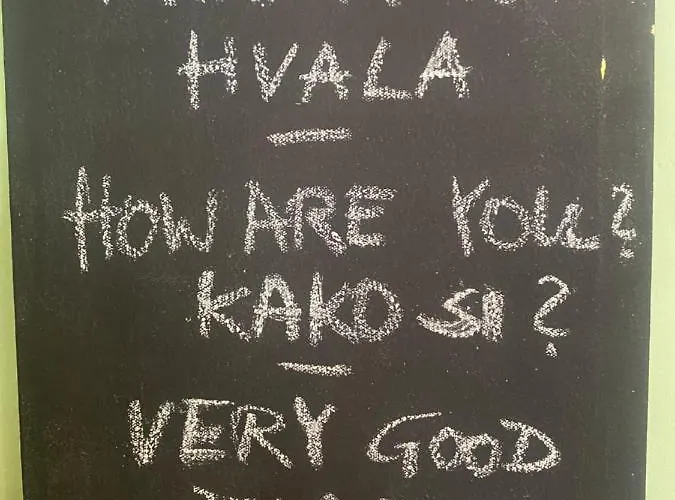 HVALA
HOW ARE YOU?
KAKO SI?
VERY GOOD